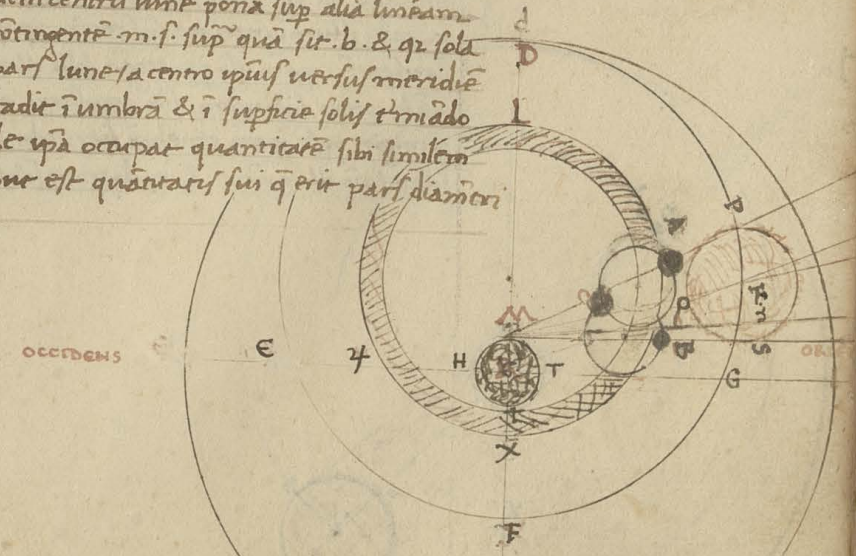 centru lune pona sup alia lineam
ōtingentē .m.s. sup̄ quā sit .b. & q2 sola
pars lune / a centro ipius versus meridiē
cadit ī umbrā & ī sup̄ficie solis t'miādo
ipā occupat quantitatē sibi similem
ut est quātitatis sui q̄ erit pars diam̄tri
d
D
L
A
P
B
M
OCCIDENS
E
4
H
T
S
G
X
F